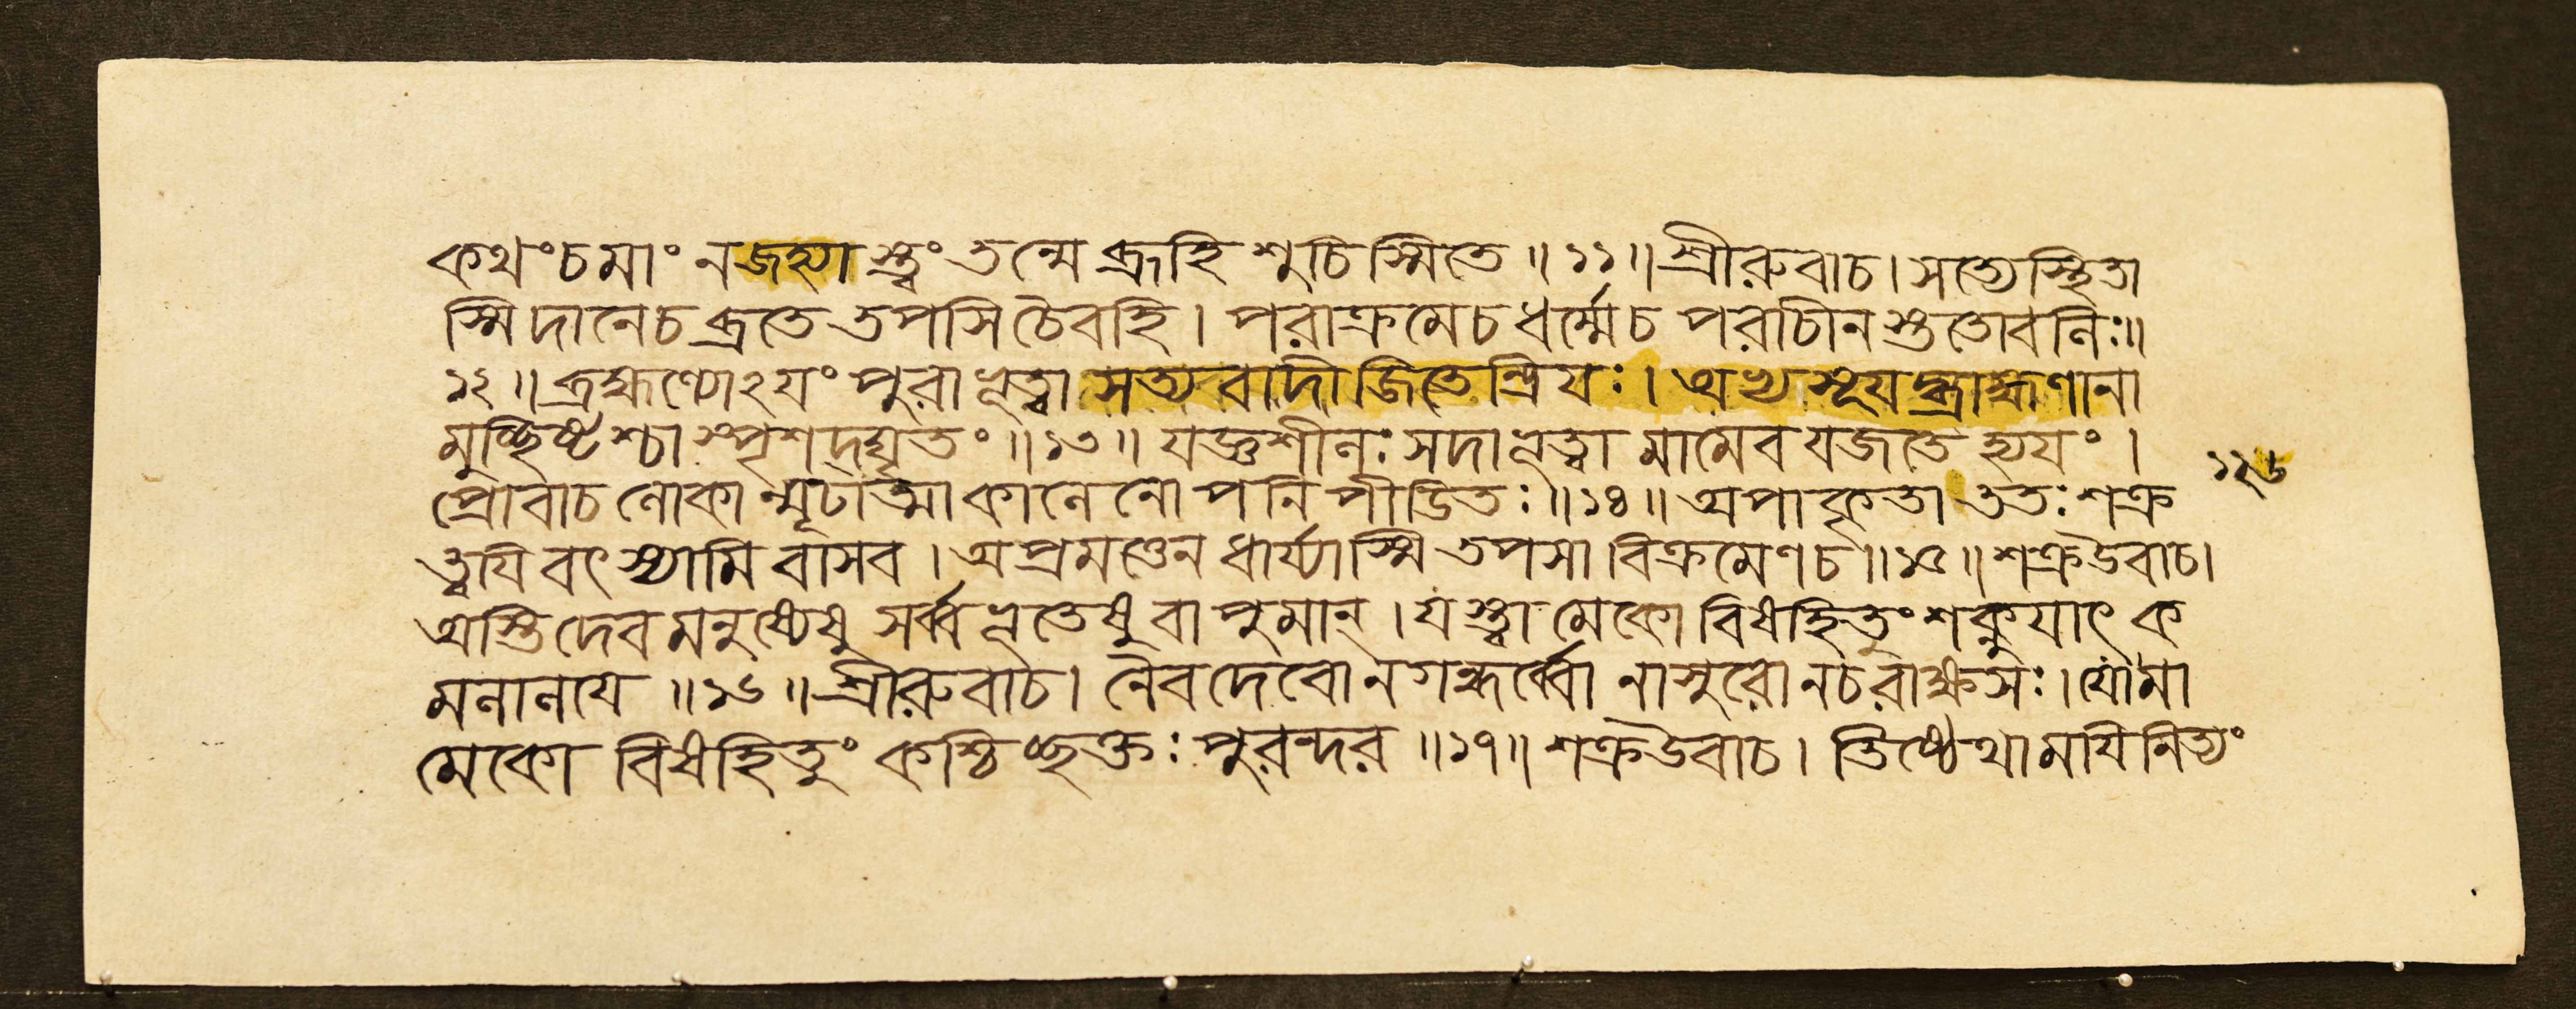 কথংচমাং নজহ্যাস্ত্বং তন্মে ব্রূহি শুচিস্মিতে ॥ ১১ ॥ শ্রীরুবাচ । সত্যেস্থিতা
স্মি দানেচ ব্রতে তপসি চৈবহি । পরাক্রমেচ ধর্ম্মেচ পরাচীনস্ততোবলিঃ ॥
১২ ॥ ব্রহ্মণ্যোঽয়ং পুরা ভূত্বা সত্যবাদী জিতেন্দ্রিযঃ । অভ্যসূযদ্ব্রাহ্মণানা
মুচ্ছিষ্টশ্চাস্পৃশদ্ঘৃতং ॥ ১৩ ॥ যজ্ঞশীলঃ সদা ভূত্বা মামেব যজতে হ্যযং ।
প্রোবাচ লোকান্মূঢাত্মা কালেনোপনিপীডিতঃ ॥ ১৪ ॥ অপাকৃতা ততঃ শক্র
ত্বযি বৎস্যামি বাসব । অপ্রমত্তেন ধার্য্যাস্মি তপসা বিক্রমেণচ ॥ ১৫ ॥ শক্রউবাচ ।
অস্তি দেবমনুষ্যেষু সর্ব্বভূতেষু বা পুমান্ । যস্ত্বামেকো বিষহিতুং শক্নুযাৎ ক
মলালযে ॥ ১৬ ॥ শ্রীরুবাচ । নৈবদেবো নগন্ধর্ব্বো নাসুরো নচরাক্ষসঃ । যোমা
মেকো বিষহিতুং কশ্চিচ্ছক্তঃ পুরন্দর ॥ ১৭ ॥ শক্রউবাচ । তিষ্ঠেথা মযি নিত্যং
১২৬